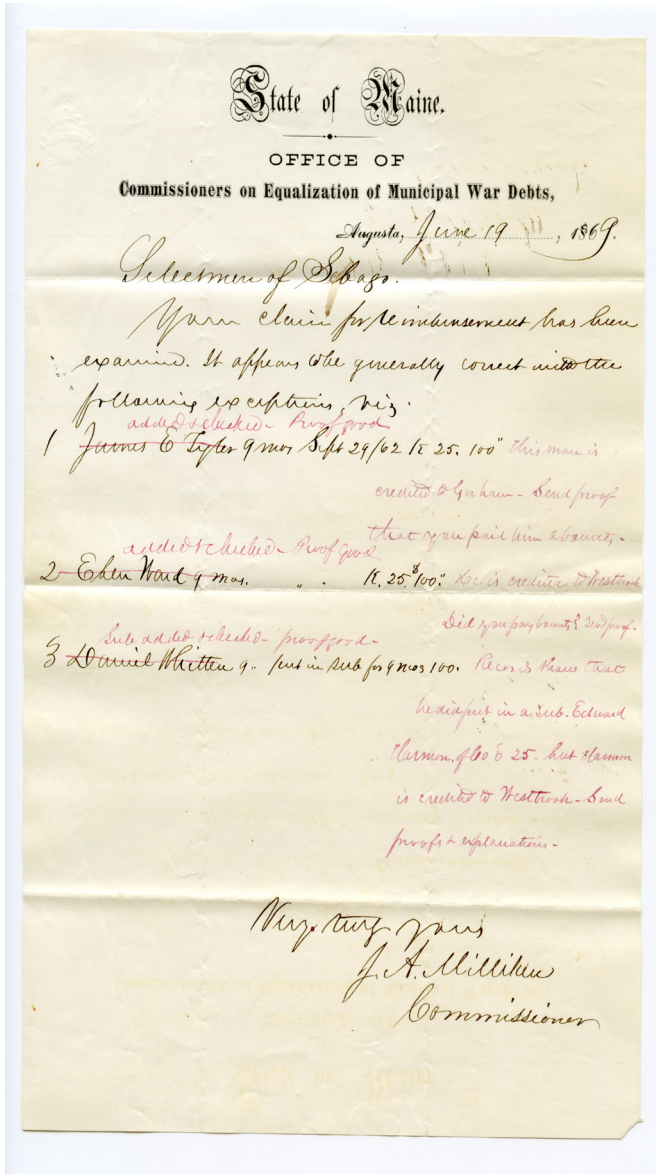 State of Maine.
OFFICE OF
Commissioners on Equalization of Municipal War Debts,
Augusta, June 19, 1869.
Selectmen of Sebago.
Your claim for reimbursement has been
examined. It appears to be generally correct with the
following exceptions, viz.
added & checked - Proof good
1 James E Tyler 9 mos Sept 29/62 K 25. 100" This man is
credited to Gorham - Send proof
that you paid him a bounty -
added & checked - Proof good
2 Eben Ward 9 mos. " . K. 25 $100". He is credited to Westbrook
Did you pay bounty? Send proof -
Sub added & checked - proof good -
3 Daniel Whitten 9 " put in sub for 9 mos 100. Records show that
he did put in a sub. Edward
Harmon, of Co 25 - but Harmon
is credited to Westbrook - Send
proofs & explanations -
Very truly yours
J. A. Milliken
Commissioner